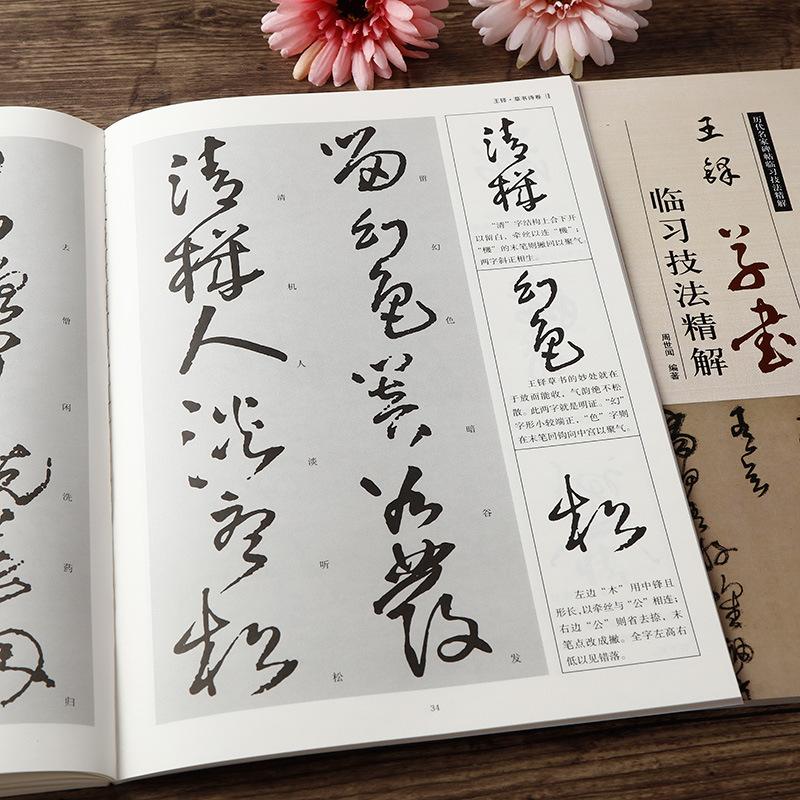 王铎·草书诗卷
留幻色暗谷发
留
幻
色
暗
谷
发
清機人淡听松
清
机
人
淡
听
松
清機
“清”字结构上合下开
以留白，牵丝以连“機”；
“機”的末笔则撇回以聚气，
两字斜正相生。
幻色
王铎草书的妙处就在
于放而能收，气韵绝不松
散。此两字就是明证。“幻”
字形小较端正，“色”字则
在末笔回钩向中宫以聚气。
松
左边“木”用中锋且
形长，以牵丝与“公”相连；
右边“公”则省去捺，末
笔点改成撇。全字左高右
低以见错落。
34
僧
闲
洗
药
归
历代名家碑帖临习技法精解
王铎
草书
临习技法精解
周世闻 编著